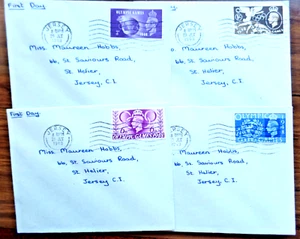 First Day
JERSEY
OLYMPIC GAMES
Miss Maureen Hobbs,
66, St Saviours Road,
St. Helier,
Jersey, C.I.
JERSEY
Miss Maureen Hobbs,
66, St Saviours Road,
St. Helier,
Jersey, C.I.
First Day
JERSEY
Miss Maureen Hobbs,
66, St Saviours Road,
St. Helier,
Jersey C.I.
JERSEY
OLYMPIC
Maureen
St. Saviours Road,
St. Helier,
Jersey C.I.